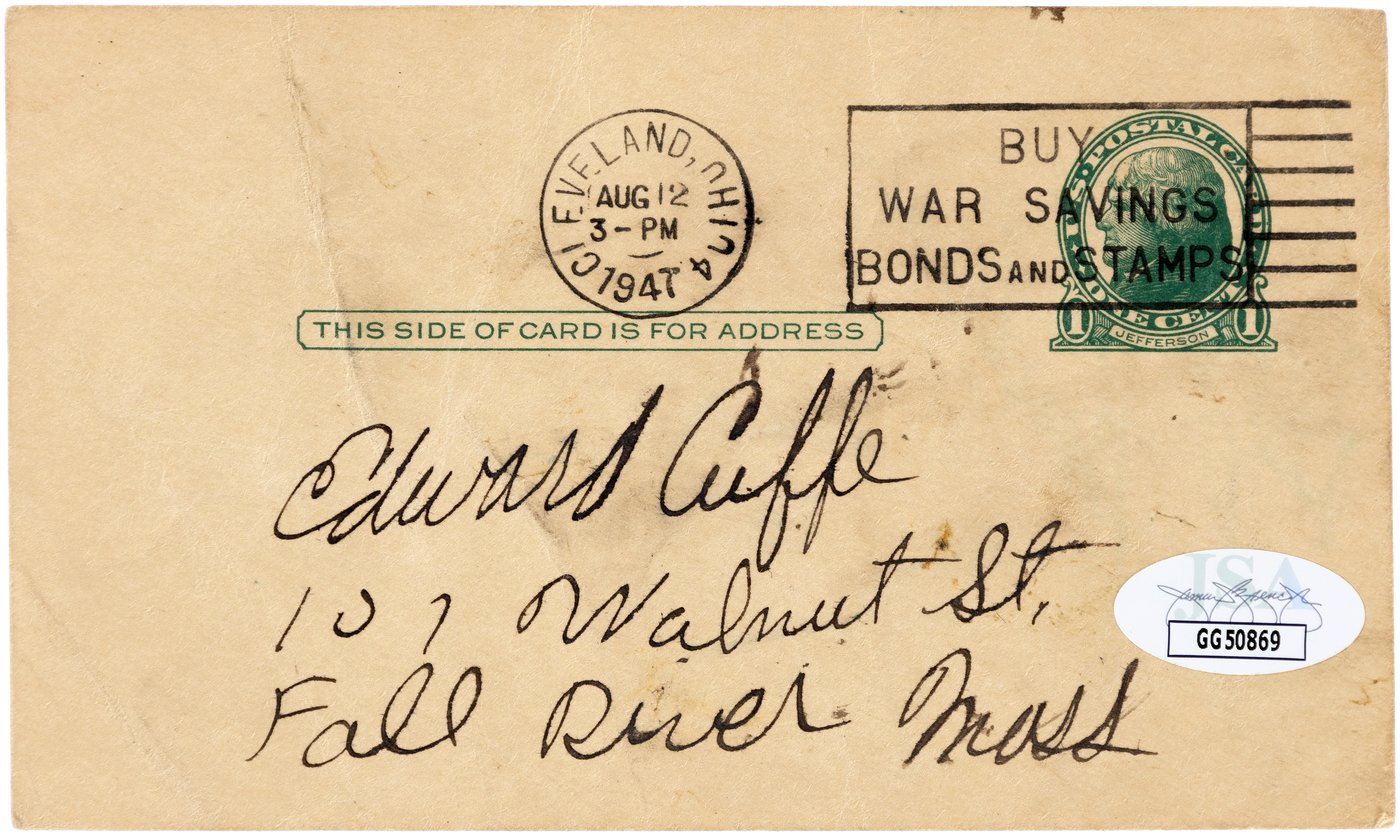 CLEVELAND, OHIO 4
AUG 12
3 - PM
1947
BUY
WAR SAVINGS
BONDS AND STAMPS
U.S. POSTAL CARD
ONE CENT
1 JEFFERSON 1
THIS SIDE OF CARD IS FOR ADDRESS
Edward Cuffe
107 Walnut St,
Fall River Mass
JSA
GG50869